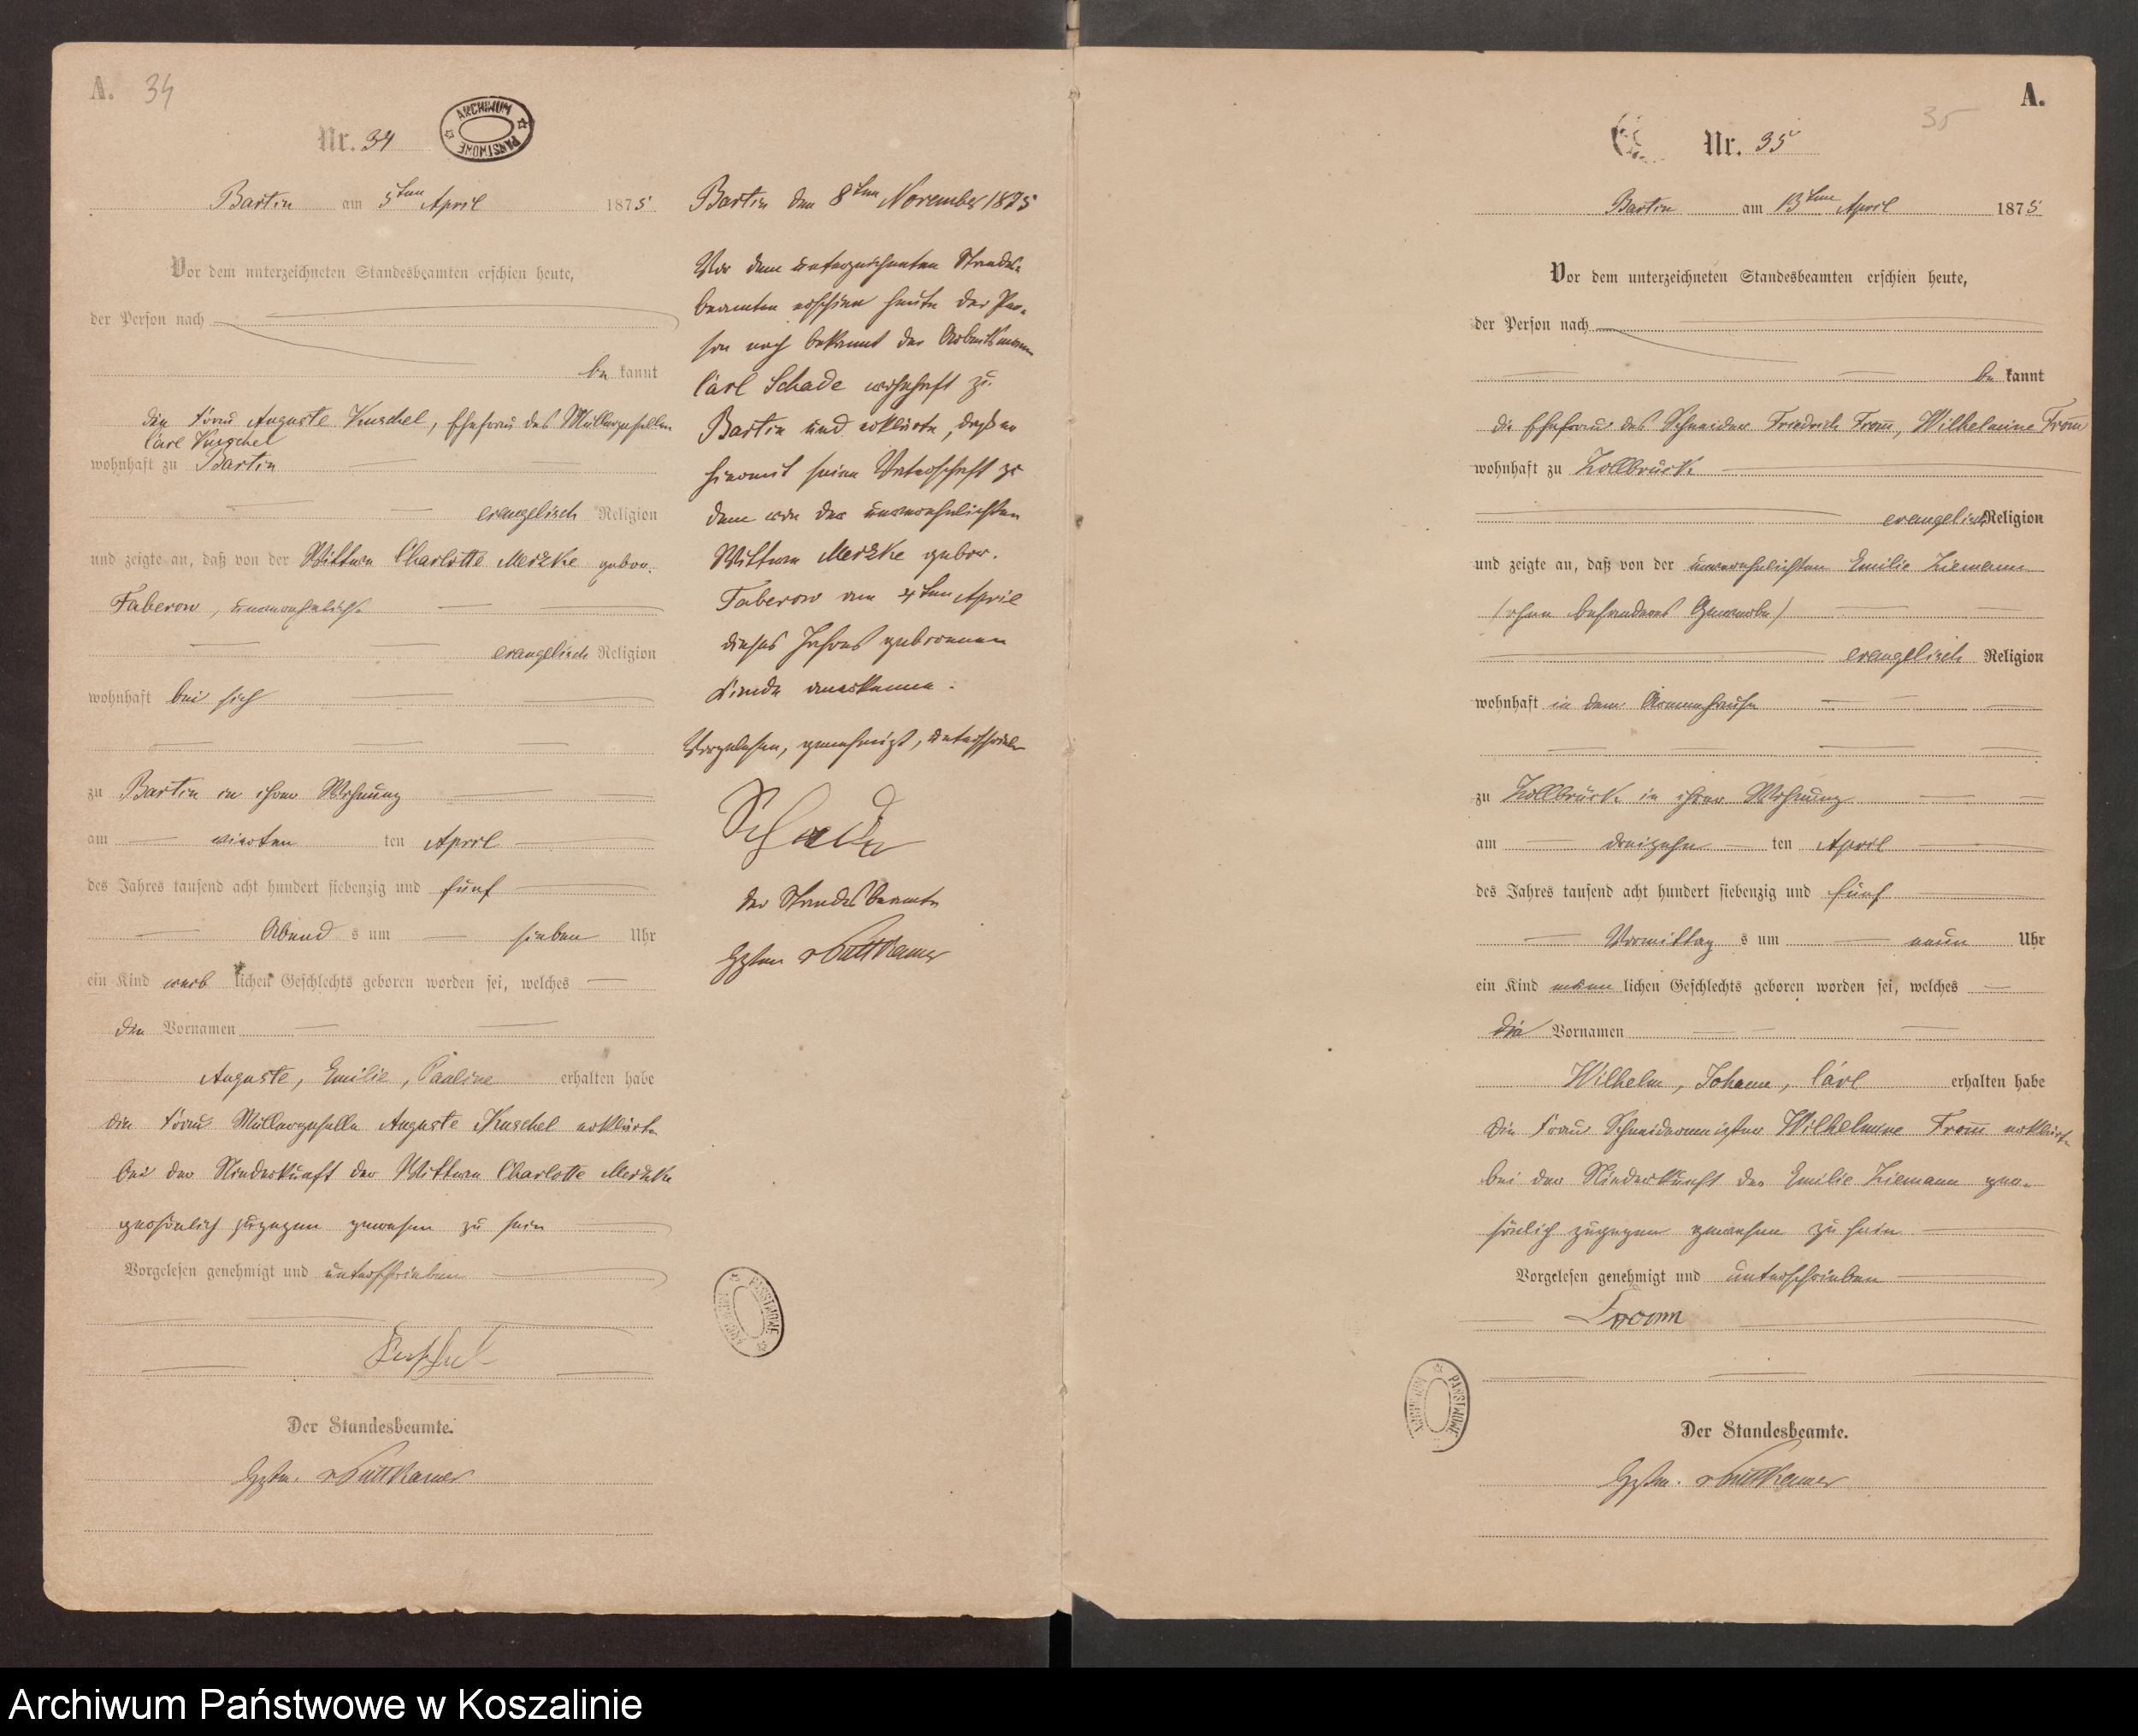 A. 34
Nr. 34
ARCHIWUM PAŃSTWOWE
Bartin am 5ten April 1875
Vor dem unterzeichneten Standesbeamten erschien heute,
der Person nach
be kannt
die Frau Auguste Kuschel, Ehefrau des Müllergesellen
Carl Kuschel
wohnhaft zu Bartin
evangelisch Religion
und zeigte an, daß von der Wittwe Charlotte Merzke gebor.
Faberow, unverehelicht
evangelisch Religion
wohnhaft bei sich
zu Bartin in ihrer Wohnung
am vierten ten April
des Jahres tausend acht hundert siebenzig und fünf
Abend s um sieben Uhr
ein Kind weib lichen Geschlechts geboren worden sei, welches
die Vornamen
Auguste, Emilie, Pauline erhalten habe
die Frau Müllergeselle Auguste Kuschel erklärte
bei der Niederkunft der Wittwe Charlotte Merzke
persönlich zugegen gewesen zu sein
Vorgelesen genehmigt und unterschrieben
Kuschel
Der Standesbeamte.
v Puttkamer
Bartin den 8ten November 1875
Vor dem unterzeichneten Standes-
beamten erschien heute der Per-
son nach bekannt der Arbeitsmann
Carl Schade wohnhaft zu
Bartin und erklärte, daß er
hiermit seine Vaterschaft zu
dem von der unverehelichten
Wittwe Merzke gebor.
Faberow am 4ten April
dieses Jahres geborenen
Kinde anerkenne.
Vorgelesen, genehmigt, unterschrieben
Schade
Der Standesbeamte
v Puttkamer
ARCHIWUM PAŃSTWOWE
A.
35
Nr. 35
Bartin am 13ten April 1875
Vor dem unterzeichneten Standesbeamten erschien heute,
der Person nach
be kannt
die Ehefrau des Schneider Friedrich From̅, Wilhelmine From̅
wohnhaft zu Zollbrück
evangelisch Religion
und zeigte an, daß von der unverehelichten Emilie Ziemann
(ohne besonderes Gewerbe)
evangelisch Religion
wohnhaft in dem Armenhause
zu Zollbrück in ihrer Wohnung
am dreizehn ten April
des Jahres tausend acht hundert siebenzig und fünf
Vormittag s um neun Uhr
ein Kind männ lichen Geschlechts geboren worden sei, welches
die Vornamen
Wilhelm, Johann, Carl erhalten habe
die Frau Schneidermeister Wilhelmine From̅ erklärte
bei der Niederkunft der Emilie Ziemann per-
sönlich zugegen gewesen zu sein
Vorgelesen genehmigt und unterschrieben
Fromm
ARCHIWUM PAŃSTWOWE
Der Standesbeamte.
v Puttkamer
Archiwum Państwowe w Koszalinie